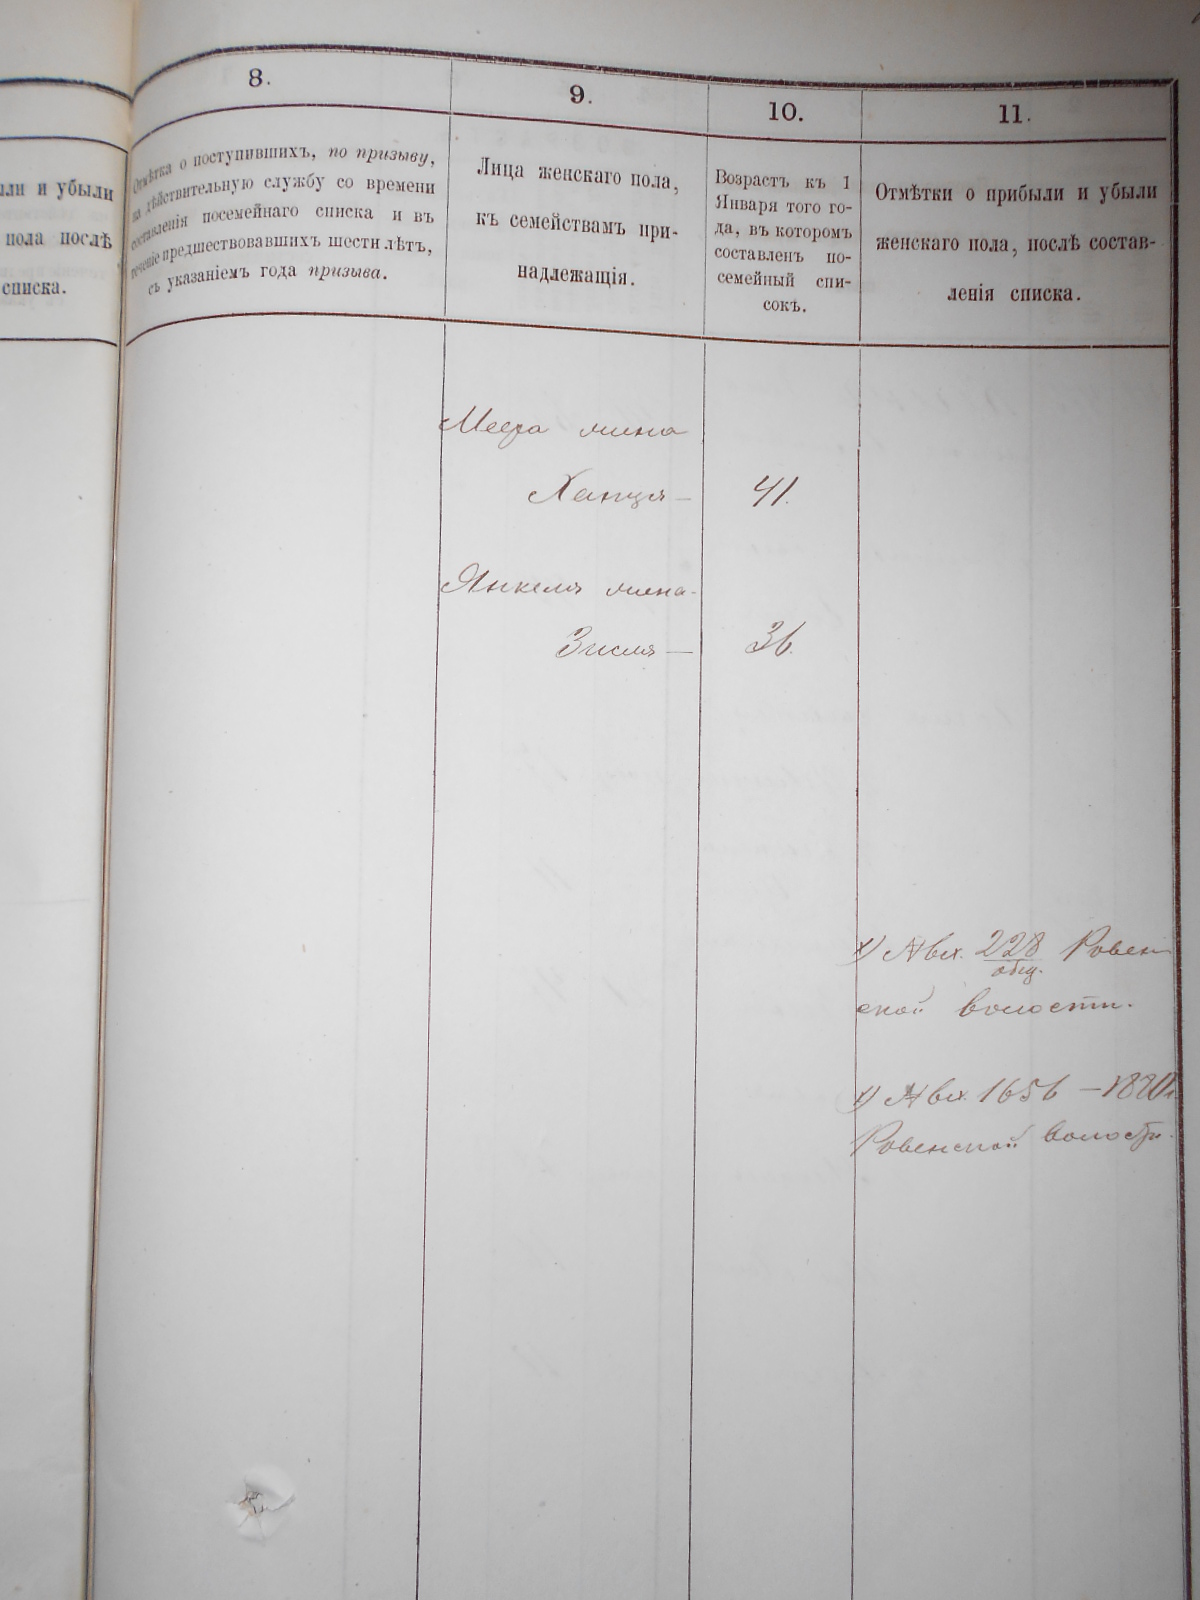 ыли и убыли
пола послѣ
списка.
8.
Отмѣтка о поступившихъ, по призыву,
на дѣйствительную службу со времени
составленія посемейнаго списка и въ
теченіе предшествовавшихъ шести лѣтъ,
съ указаніемъ года призыва.
9.
Лица женскаго пола,
къ семействамъ при-
надлежащія.
10.
Возрастъ къ 1
Января того го-
да, въ которомъ
составленъ по-
семейный спи-
сокъ.
11.
Отмѣтки о прибыли и убыли
женскаго пола, послѣ состав-
ленія списка.
Меера жена
Ханця — 41.
Янкеля жена
Зисля — 36.
х) № вх. 228 Ровен
общ.
ской волости.
х) № вх. 1656 — 1880 г
Ровенской волости.